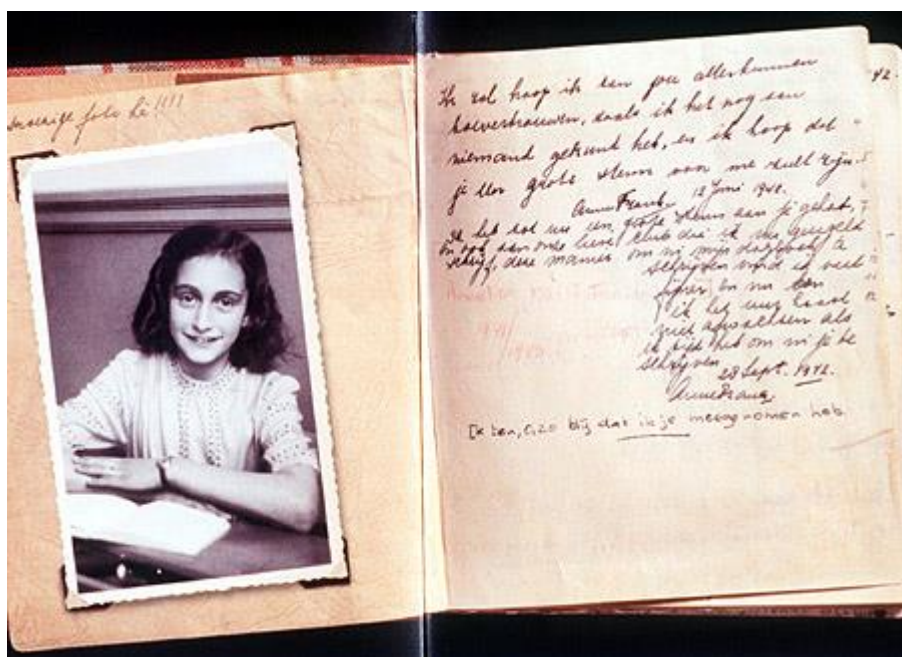 foto hè!!!!
Ik zal hoop ik aan jou alles kunnen
toevertrouwen, zoals ik het nog aan
niemand gekund heb, en ik hoop dat
je een grote steun voor me zult zijn.
Anne Frank. 12 Juni 1942.
Ik heb tot nu toe een grote steun aan je gehad,
en ook aan onze lieve club die ik nu geregeld
schrijf, deze manier om in mijn dagboek te
schrijven vind ik veel
fijner en nu kan
ik het uur haast
niet afwachten als
ik tijd heb om in je te
schrijven.
28 Sept. 1942.
Anne Frank
Ik ben, o, zo blij dat ik je meegenomen heb
42.